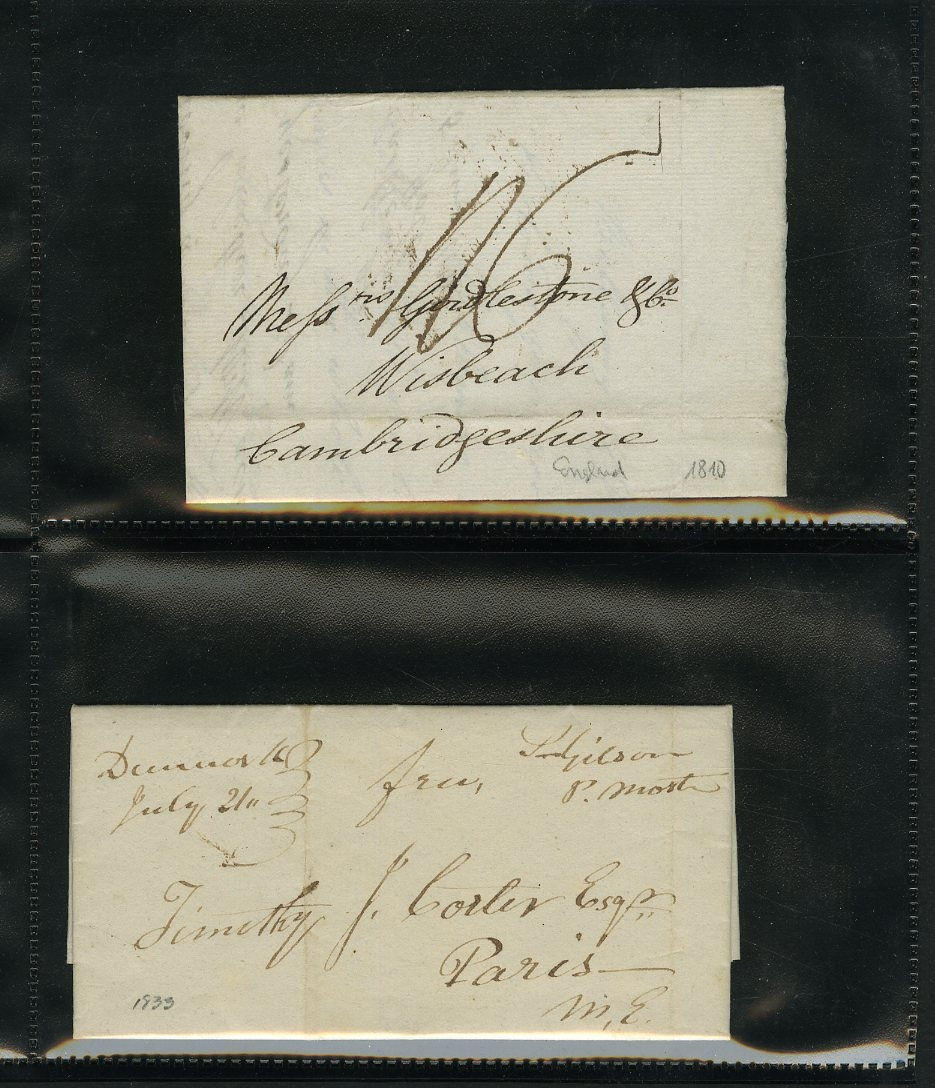 Messrs Girdlestone & Co
Wisbeach
Cambridgeshire
England 1810
Denmark
July 21"
free,
S Gibson
P. Mast
Timothy J. Carter Esqr
Paris
M, E.
1833